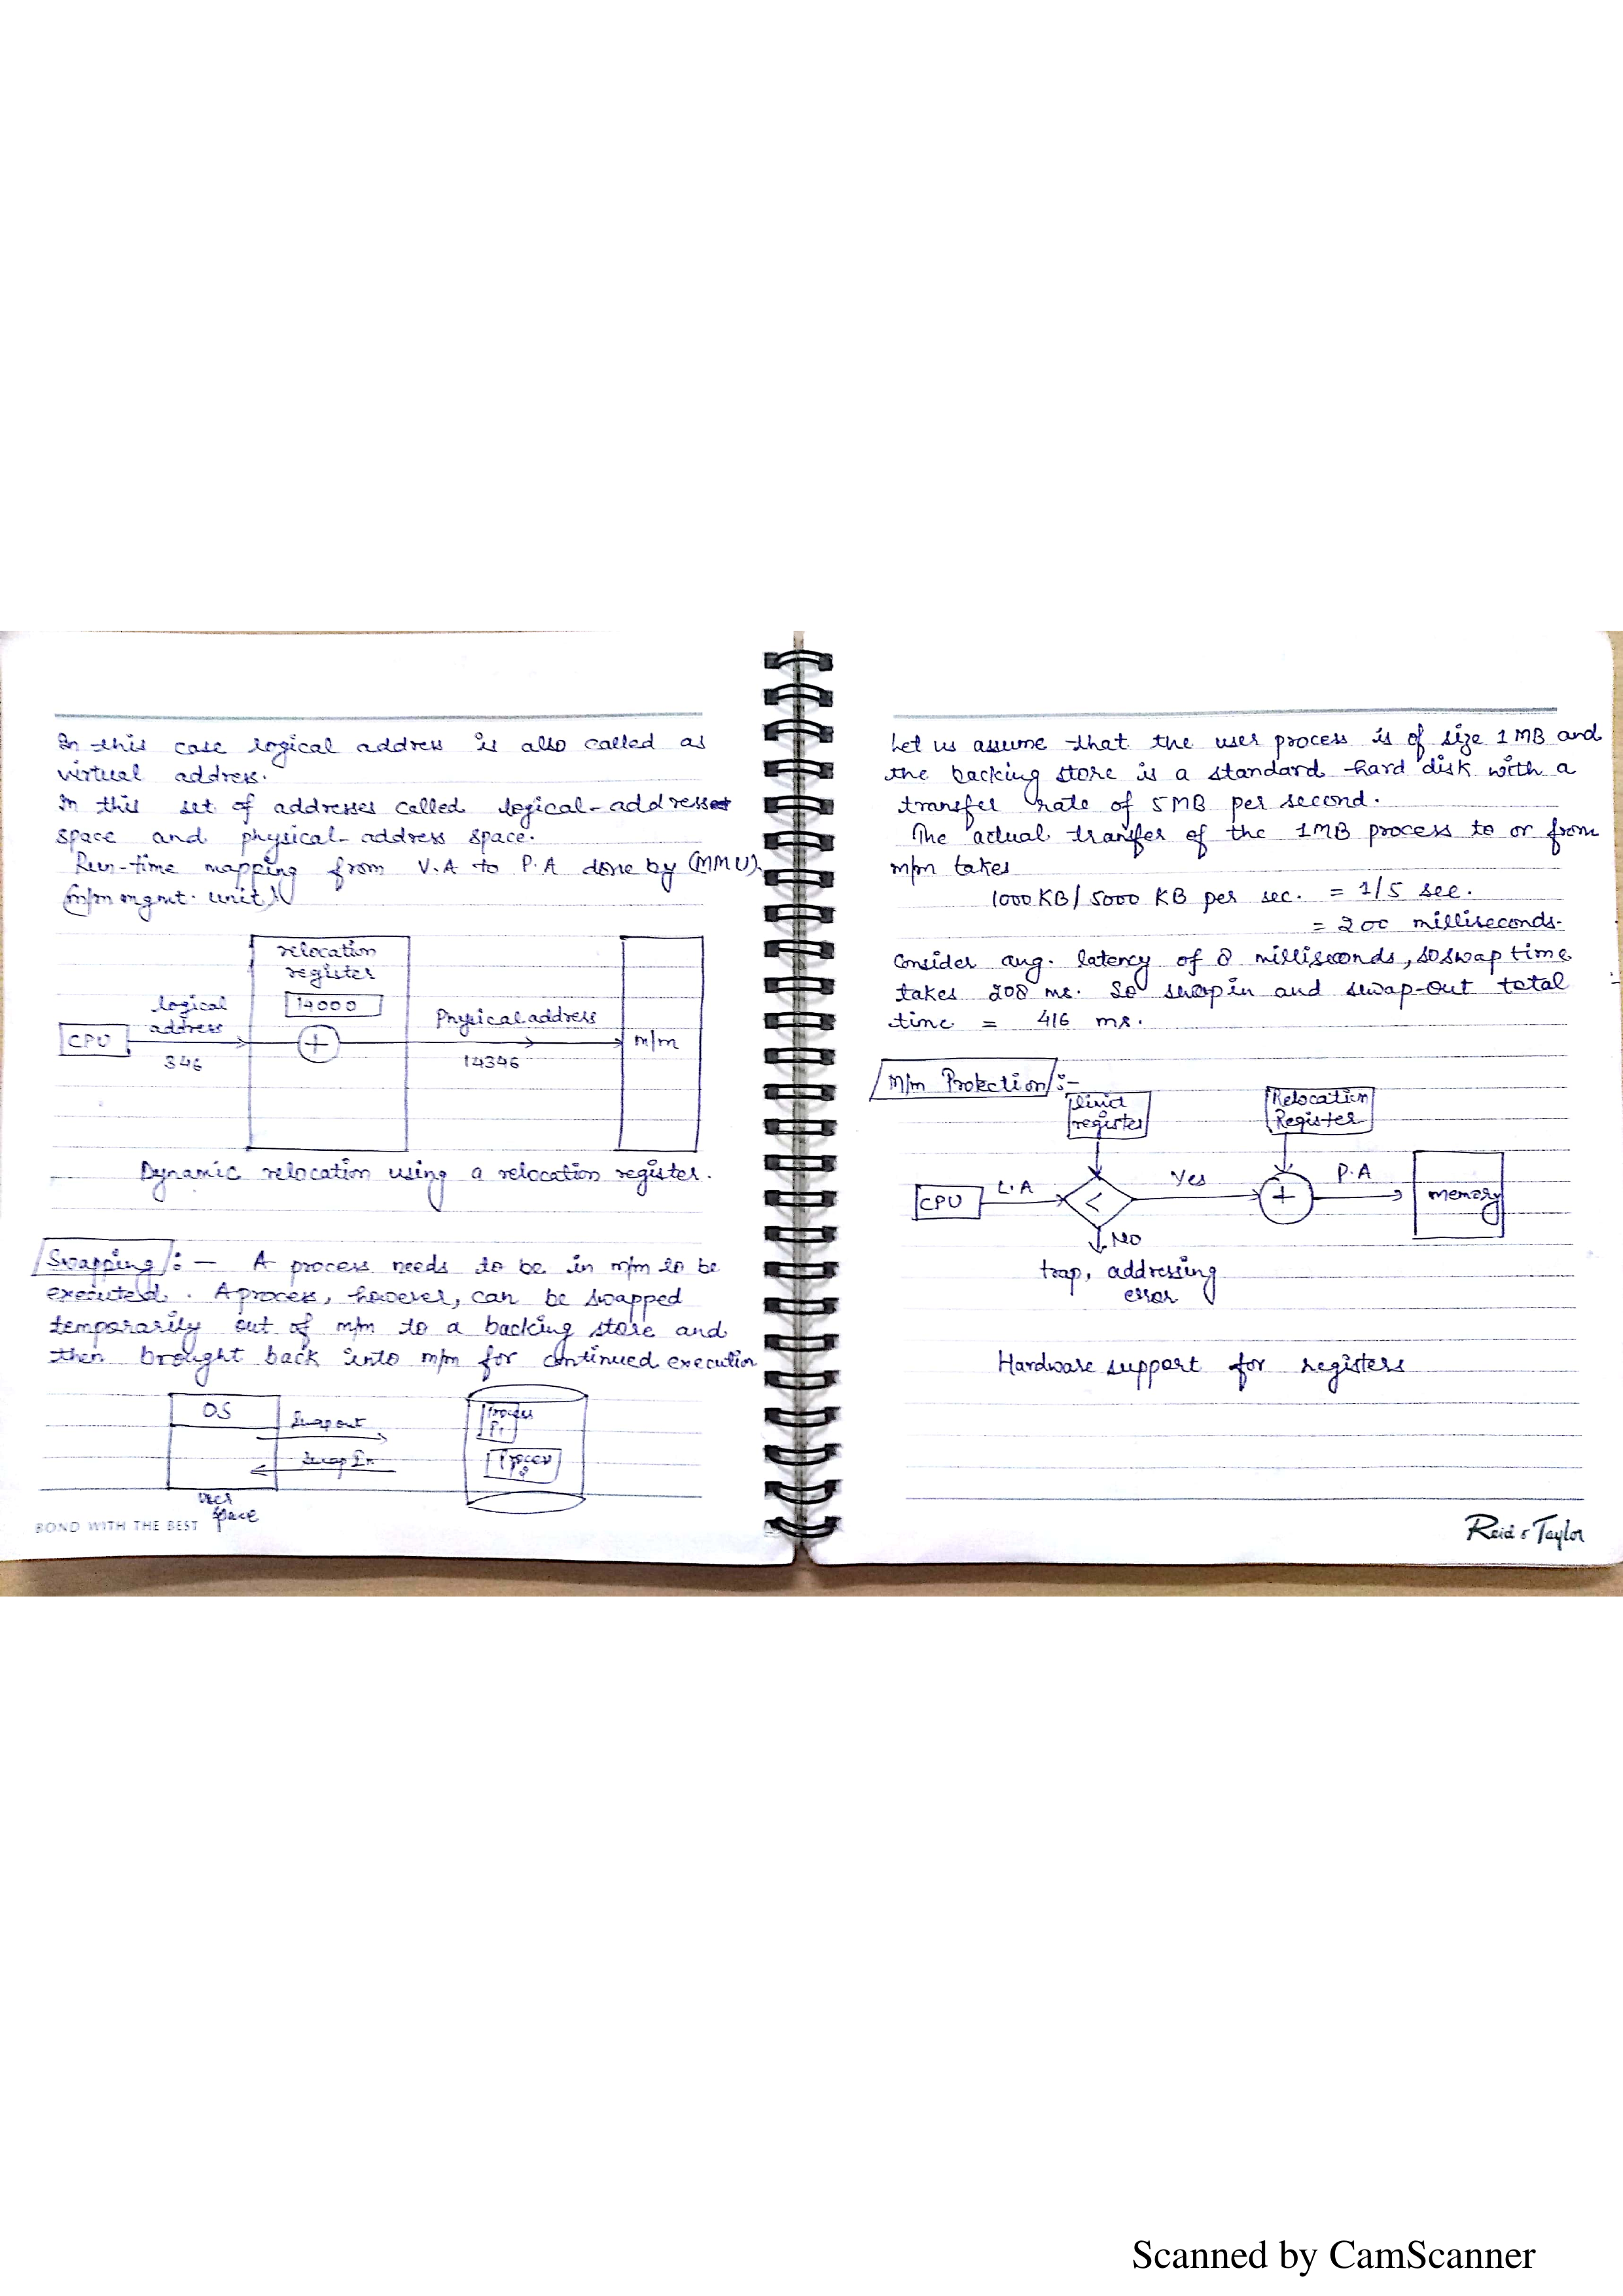 In this case logical address is also called as
virtual address.
In this set of addresses called logical-address
space and physical-address space.
Run-time mapping from V.A to P.A done by (MMU).
(m/m mgmt. unit)
relocation
register
14000
logical
address
CPU
+
346
Physical address
14346
m/m
Dynamic relocation using a relocation register.
Swapping :— A process needs to be in m/m to be
executed. A process, however, can be swapped
temporarily out of m/m to a backing store and
then brought back into m/m for continued execution
OS
Swap out
Swap In
User
space
Process
P1
Process
BOND WITH THE BEST
Let us assume that the user process is of size 1 MB and
the backing store is a standard hard disk with a
transfer rate of 5MB per second.
The actual transfer of the 1MB process to or from
m/m takes
1000 KB/ 5000 KB per sec. = 1/5 sec.
= 200 milliseconds.
Consider avg. latency of 8 milliseconds, so swap time
takes 208 ms. So swap in and swap-out total
time = 416 ms.
M/m Protection :-
limit
register
Relocation
Register
CPU
L.A
<
Yes
+
P.A
memory
No
trap, addressing
error
Hardware support for registers
Reid & Taylor
Scanned by CamScanner